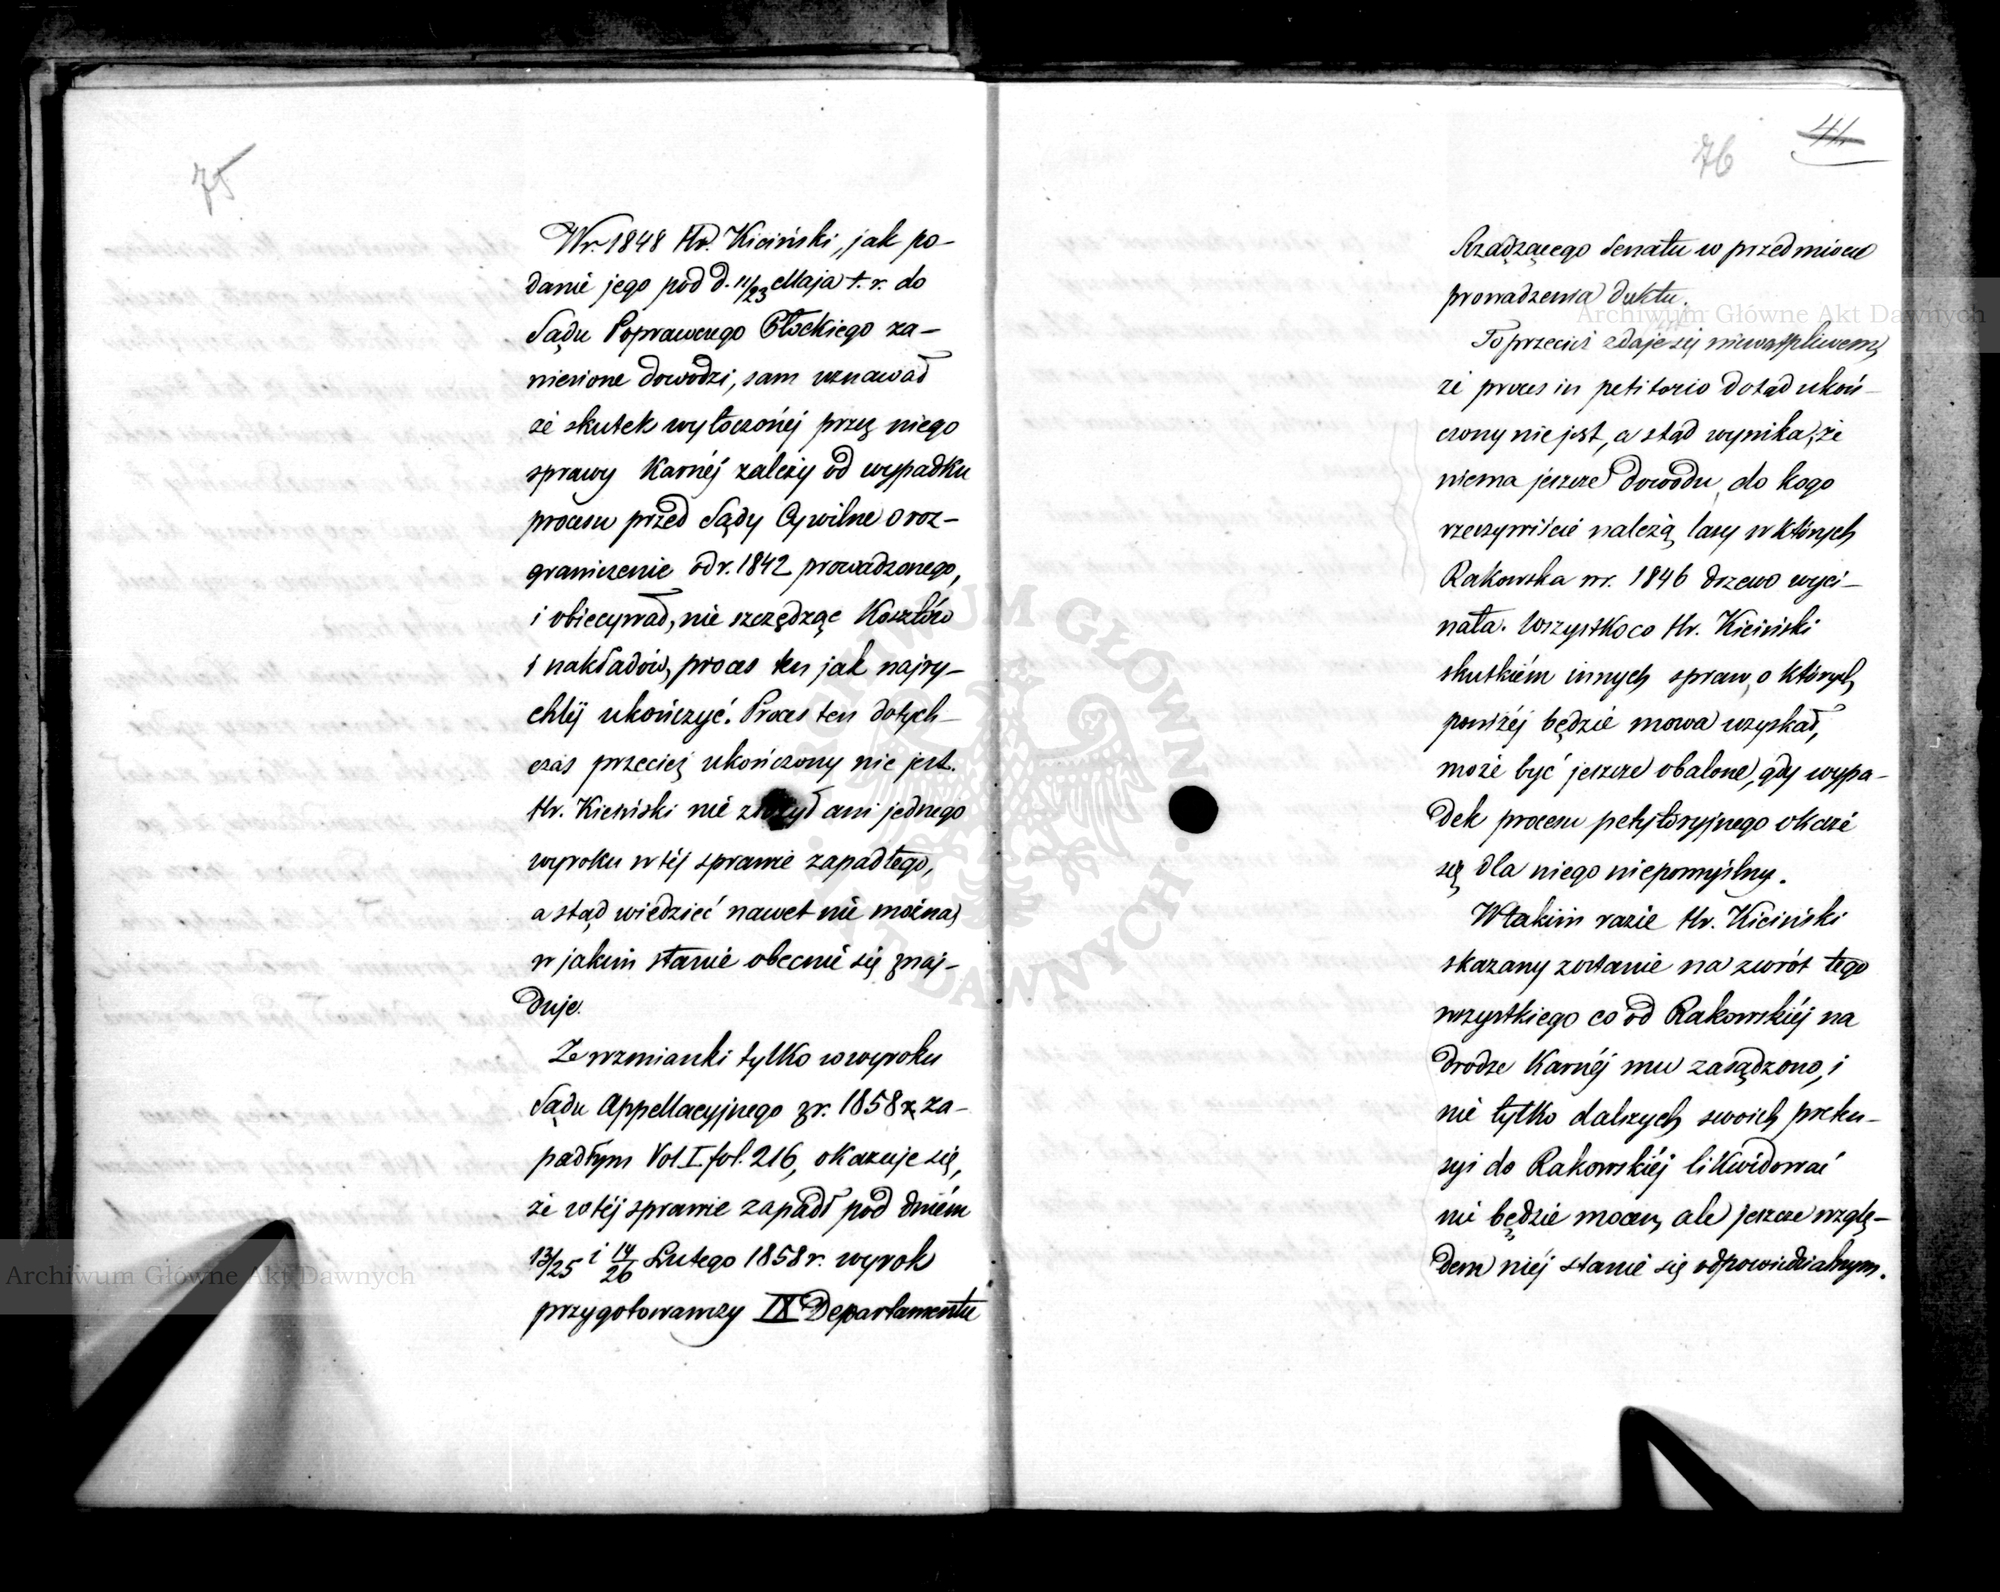 75
W r. 1848 Hr. Kiciński, jak po-
danie jego pod d. 11/23 Maja t. r. do
Sądu Poprawczego Płockiego za-
niesione dowodzi, sam uznawał
że skutek wytoczonéj przez niego
sprawy Karnéj zależy od wypadku
procesu przed Sądy Cywilne o roz-
graniczenie od r. 1842 prowadzonego,
i obiecywał, nie szczędząc Kosztów
i nakładów, proces ten jak najry-
chlij ukończyć. Proces ten dotych-
czas przecież ukończony nie jest.
Hr. Kiciński nie złożył ani jednego
wyroku w téj sprawie zapadłego,
a stąd wiedzieć nawet nie można,
w jakim stanie obecnie się znaj-
duje.
Ze wzmianki tylko w wyroku
Sądu Appellacyjnego z r. 1858 za-
padłym Vol. I. fol. 216, okazuje się,
że w téj sprawie zapadł pod dniem
13/25 i 14/26 Lutego 1858 r. wyrok
przygotowawczy IX Departamentu
76
41
Rządzącego Senatu w przedmiocie
prowadzenia duktu.
To przecież zdaje się niewątpliwem,
że proces in petitorio dotąd ukoń-
czony nie jest, a stąd wynika, że
niema jeszcze dowodu, do kogo
rzeczywiście należą lasy w których
Rakowska w r. 1846 drzewo wyci-
nała. Wszystko co Hr. Kiciński
skutkiém innych spraw, o których
poniżéj będzie mowa uzyskał,
może być jeszcze obalone, gdy wypa-
dek procesu petytoryjnego okaże
się dla niego niepomyślny.
W takim razie Hr. Kiciński
skazany zostanie na zwrót tego
wszystkiego co od Rakowskiéj na
drodze Karnéj mu zasądzono, i
nie tylko dalszych swoich preten-
syi do Rakowskiéj likwidować
nie będzie mocen, ale jeszcze wzglę-
dem niéj stanie się odpowiedzialnym.
Archiwum Główne Akt Dawnych
Archiwum Główne Akt Dawnych
ARCHIWUM GŁÓWNE AKT DAWNYCH